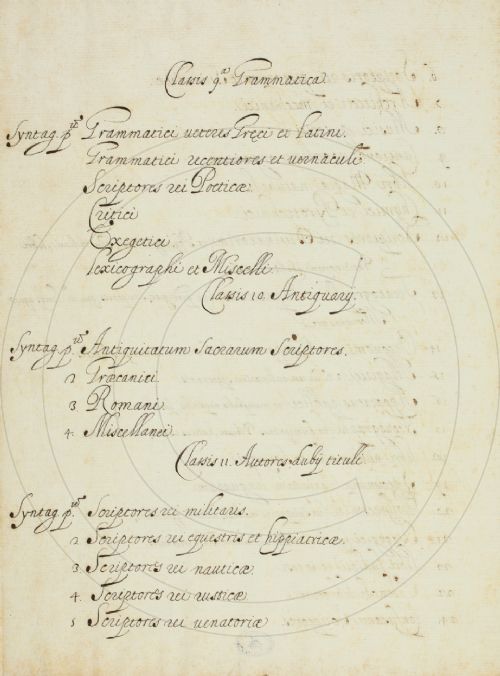 Classis 9.ª Grammatica
Syntag. p.ᵘˢ Grammatici veteres Gręci et Latini.
Grammatici recentiores et vernaculi
Scriptores rei Poeticæ
Critici
Exegetici
Lexicographi et Miscelli
Classis 10. Antiquarÿ.
Syntag. p.ᵘˢ Antiquitatum Sacrarum Scriptores.
2 Græcanici
3 Romani
4. Miscellanei
Classis 11. Autores dubÿ tituli
Syntag. p.ᵘˢ Scriptores rei militaris.
2 Scriptores rei equestris et hippiatricæ
3. Scriptores rei nauticæ
4. Scriptores rei rusticæ
5 Scriptores rei venatoriæ